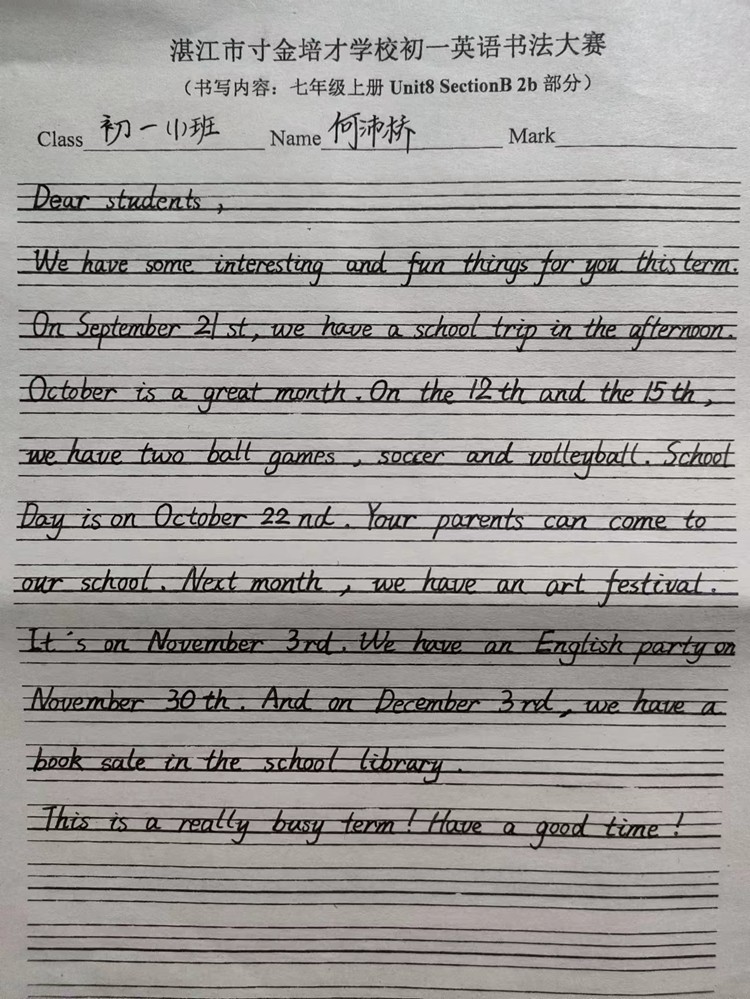 湛江市寸金培才学校初一英语书法大赛
（书写内容：七年级上册 Unit8 SectionB 2b 部分）
Class 初一小班 Name 何沛桥 Mark
Dear students ,
We have some interesting and fun things for you this term.
On September 21st, we have a school trip in the afternoon.
October is a great month. On the 12th and the 15th ,
we have two ball games , soccer and volleyball. School
Day is on October 22nd . Your parents can come to
our school. Next month , we have an art festival.
It's on November 3rd. We have an English party on
November 30th. And on December 3rd, we have a
book sale in the school library .
This is a really busy term! Have a good time !